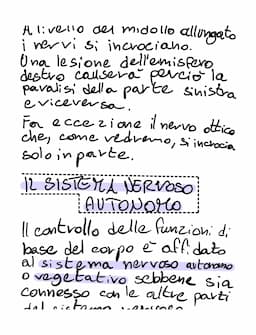 A livello del midollo allungato
i nervi si incrociano.
Una lesione dell'emisfero
destro causerà perciò la
paralisi della parte sinistra
e viceversa.
Fa eccezione il nervo ottico
che, come vedremo, si incrocia
solo in parte.
IL SISTEMA NERVOSO
AUTONOMO
Il controllo delle funzioni di
base del corpo è affidato
al sistema nervoso autonomo
o vegetativo sebbene sia
connesso con le altre parti
del sistema nervoso